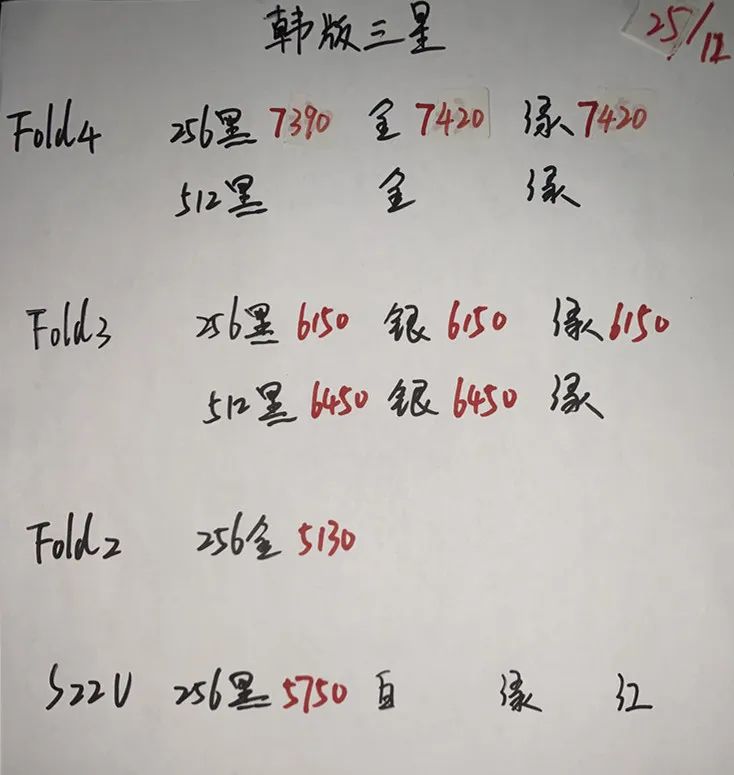 韩版三星
25/12
Fold4 256黑 7390 金 7420 绿 7420
512黑 金 绿
Fold3 256黑 6150 银 6150 绿 6150
512黑 6450 银 6450 绿
Fold2 256金 5130
S22U 256黑 5750 白 绿 红